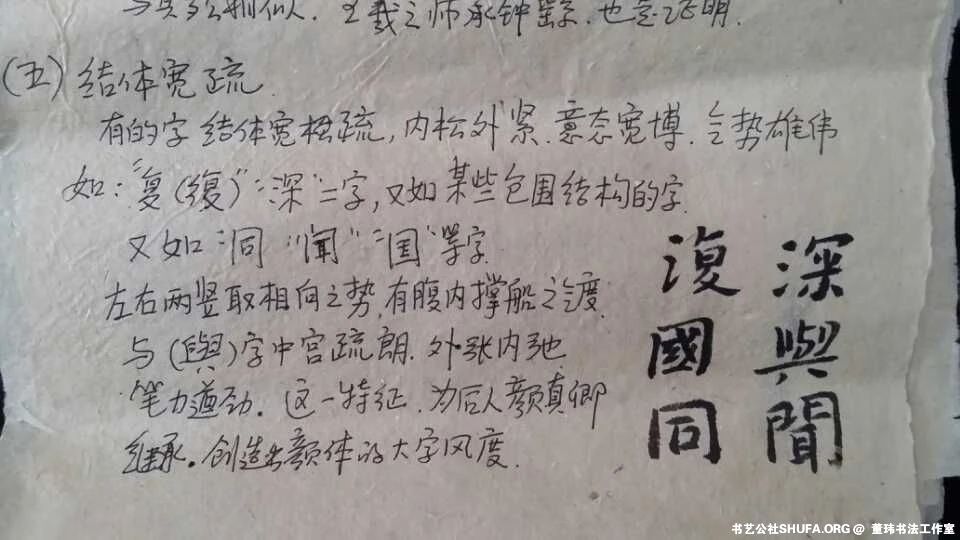 王羲之师承钟繇, 也是证明.
(五) 结体宽疏.
有的字结体宽松疏, 内松外紧. 意态宽博. 气势雄伟
如: "复(復)" "深" 二字, 又如某些包围结构的字.
又如 "同" "闻" "国" 等字.
左右两竖取相向之势, 有腹内撑船之气度.
与(與)字中宫疏朗. 外张内弛
笔力遒劲. 这一特征. 为后人颜真卿
继承。创造出颜体的大字风度.
深 與 聞
復 國 同
书艺公社SHUFA.ORG @ 董玮书法工作室